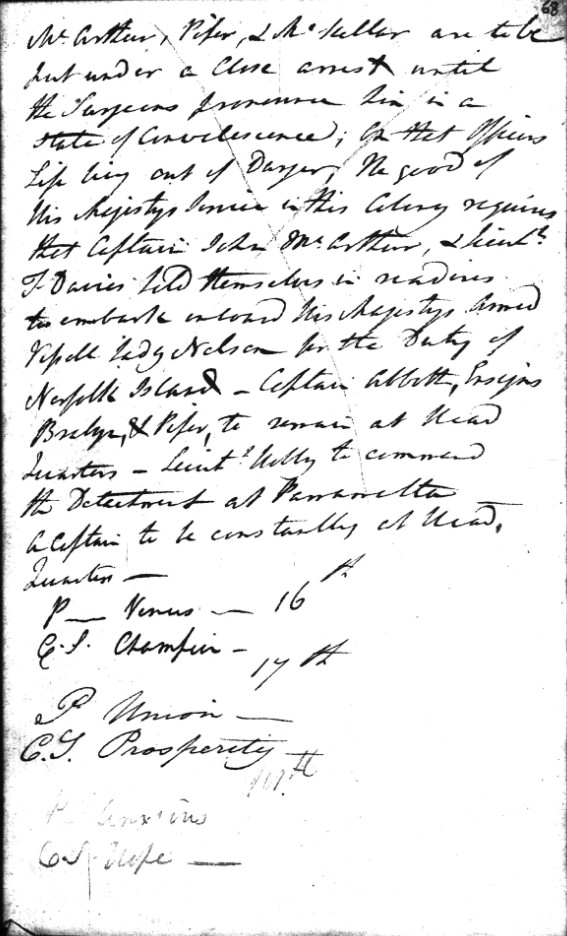 68
McArthur, Piper, & McKellar are to be
put under a Close arrest until
the Surgeons pronounce him in a
state of Convelescence; On that Officers
Life being out of Danger, the good of
His Majestys Service in this Colony requires
that Captain John McArthur, & Lieutt.
T Davies hold themselves in readiness
to embark onboard His Majestys Armed
Vessell Lady Nelson for the Duty of
Norfolk Island – Captain Abbott, Ensigns
& Piper, to remain at Head
Quarters – Lieutt. to command
the Detachment at Parramatta
a Captain to be constantly at Head,
Quarters —
P — Venus — 16th
C.S. Champion –
17th
P Union —
C.S. Prosperity —
th
P
C.S. Hope —